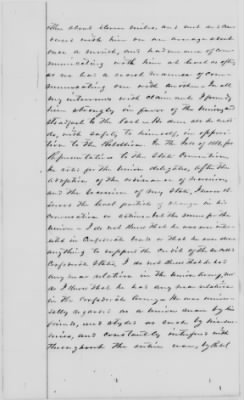 than about eleven miles, and met and con
versed with him on an average about
once a month, and had means of com
municating with him at least as often
as we had a secret manner of com
municating one with another. In all
my interviews with claimant I found
him strongly in favor of the Union, and
steadfast to the last. He done all he could
do, with safety to himself, in opposi
tion to the Rebellion. In the fall of 1860, for
Representatives to the State Convention
he voted for the Union delegates, after the
adoption of the ordinance of Secession,
and the secession of my State, I never ob
served the least particle of change in his
conversation or action but the same for the
Union. I do not know that he was ever inter
ested in Confederate bonds or that he ever done
anything to support the credit of the so called
Confederate States, I do not know that he had
any near relative in the Union army, nor
do I know that he has any near relative
in the Confederate Army. He was univer
sally regarded as a union man by his
friends, and styled as such by his ene
mies, and constantly interfered with
throughout the entire war, by Rebel